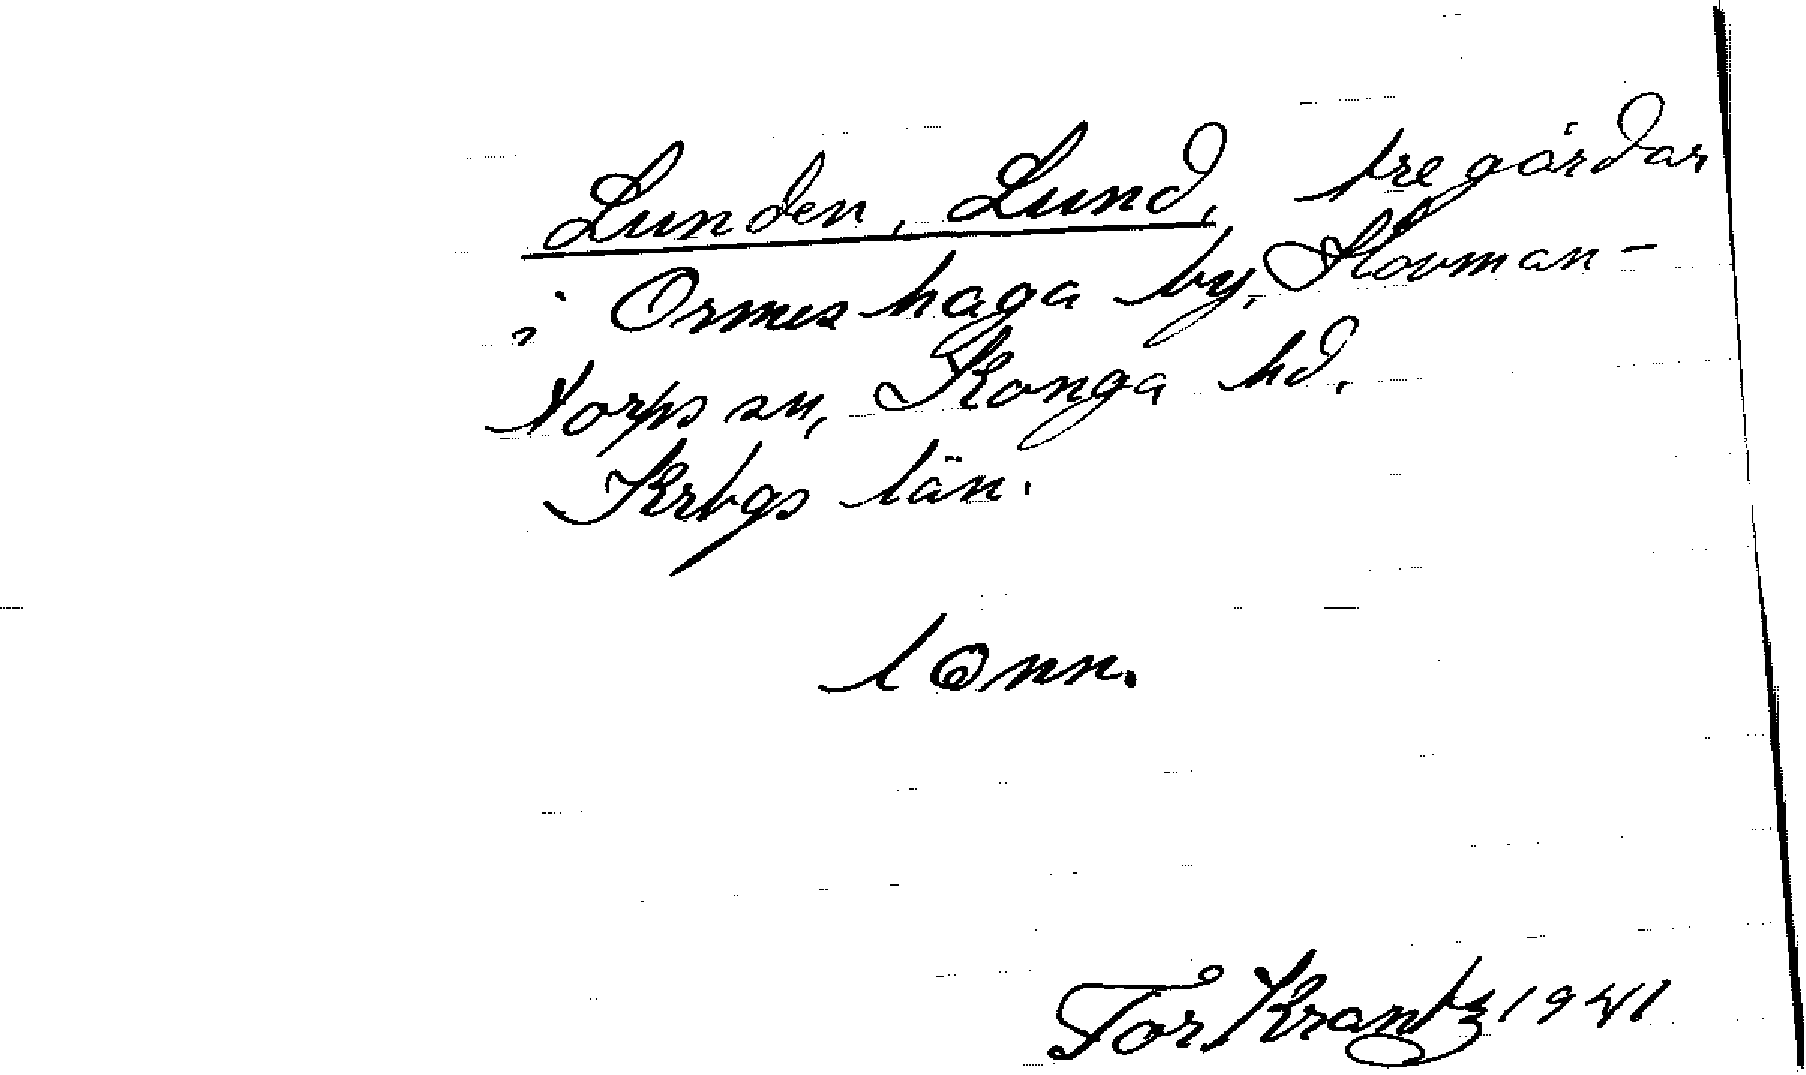 Lunden, Lund, tre gårdar
i Ormeshaga by, Hovman-
torps sn, Konga hd.
Krbgs län.
lönn.
Tor Krantz 1941